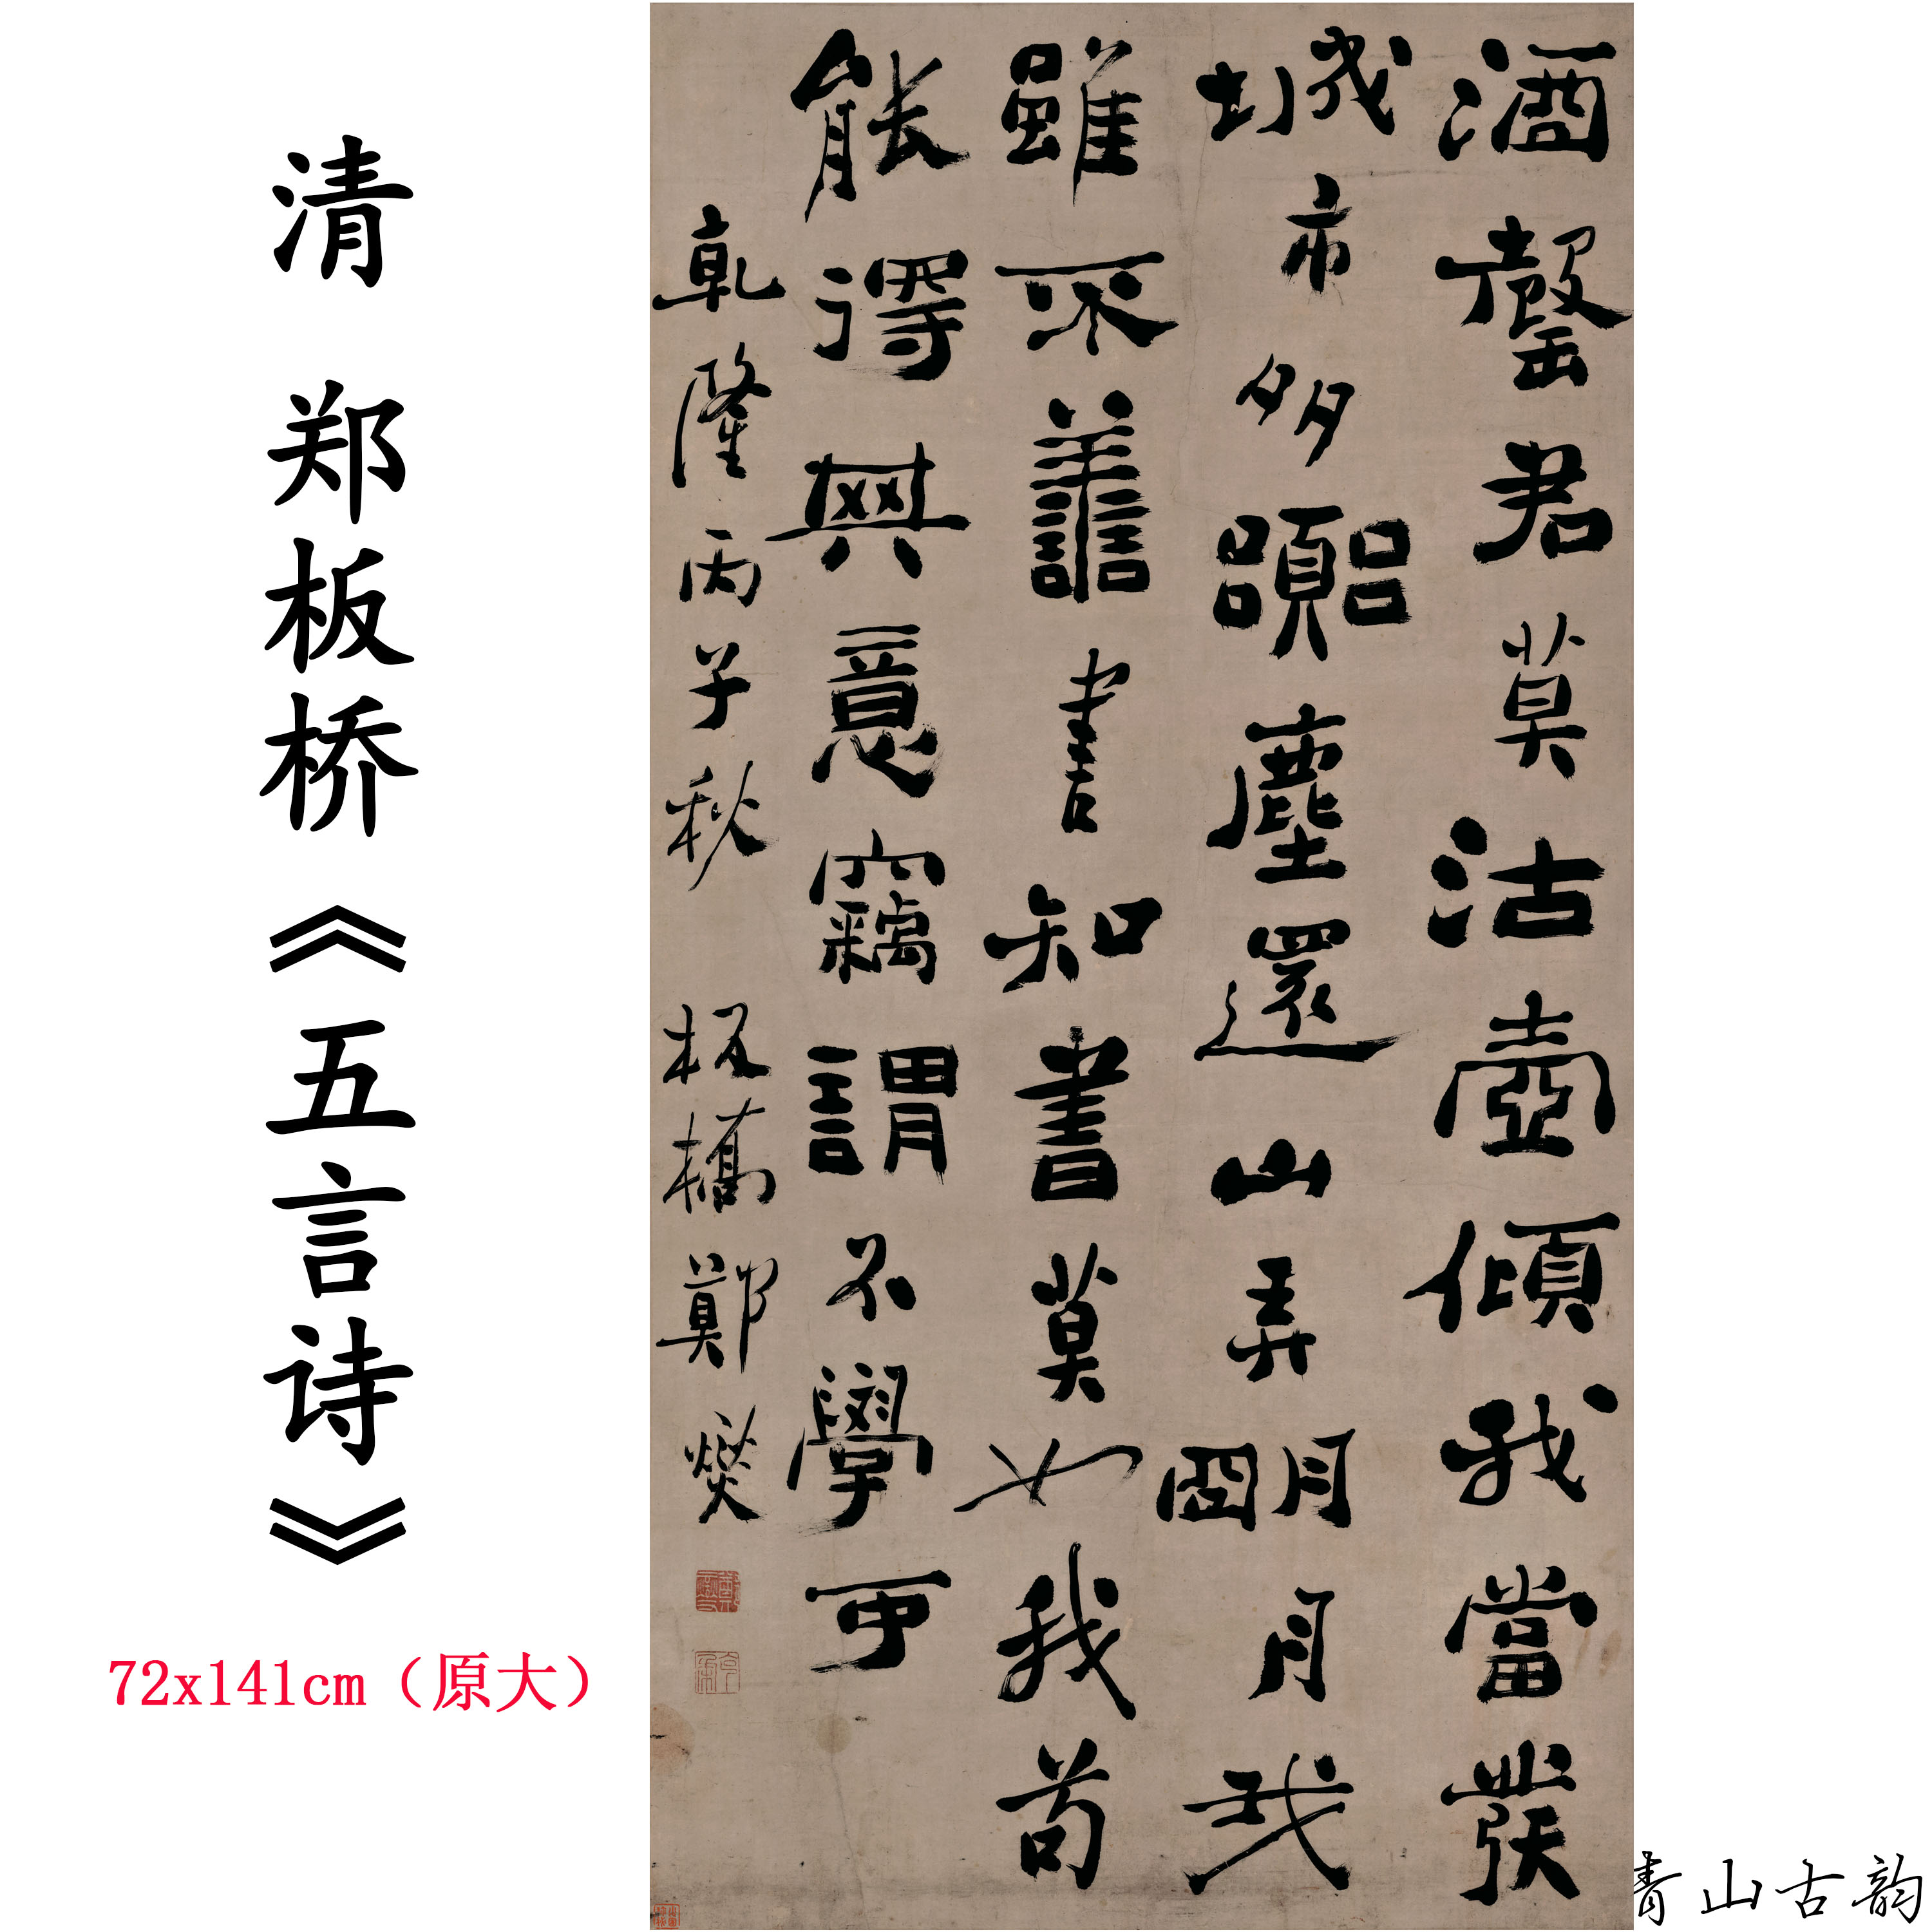 清 郑板桥《五言诗》
72x141cm（原大）
酒罄君莫沽壺傾我當發
城市多囂塵還山弄明月我
雖不善書知書莫如我苟
能得其意竊謂不學可
乾隆丙子秋 板橋鄭燮
青山古韵